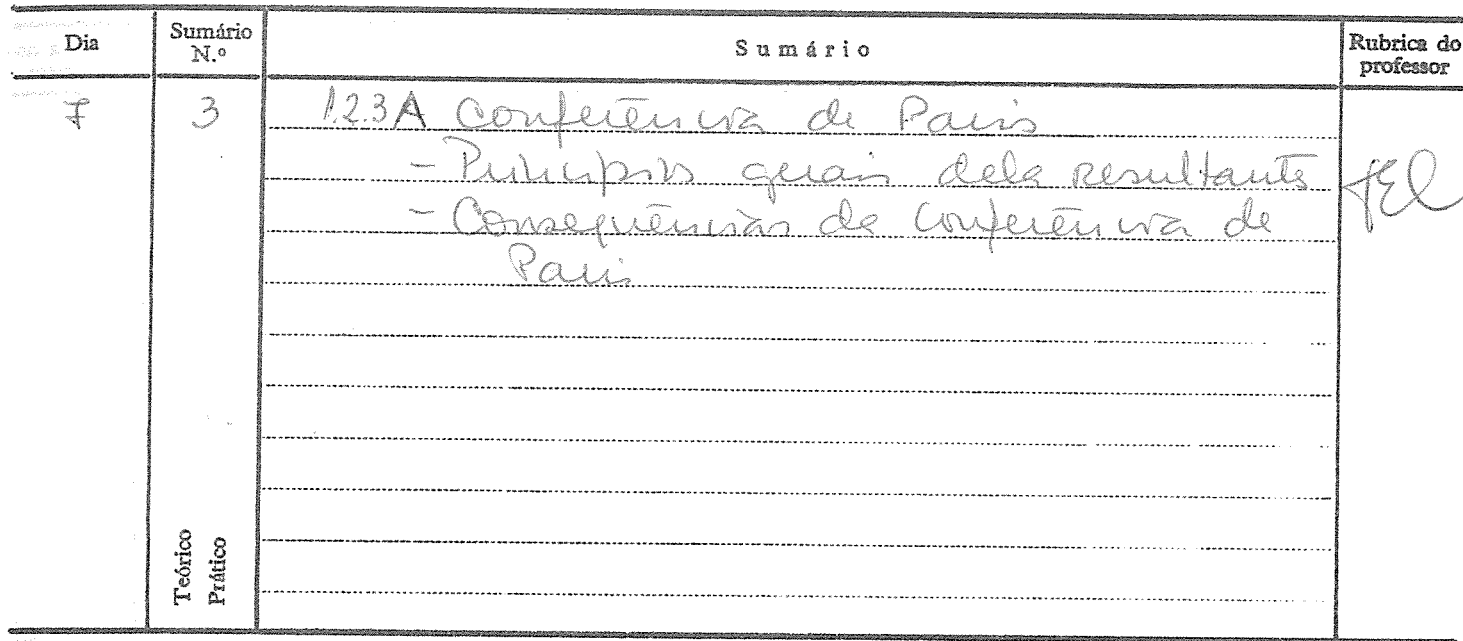 Dia
Sumário N.º
Sumário
Rubrica do professor
7
3
1.2.3 A Conferência de Paris
- Princípios gerais dela resultantes
- Consequências da Conferência de
Paris
Teórico
Prático